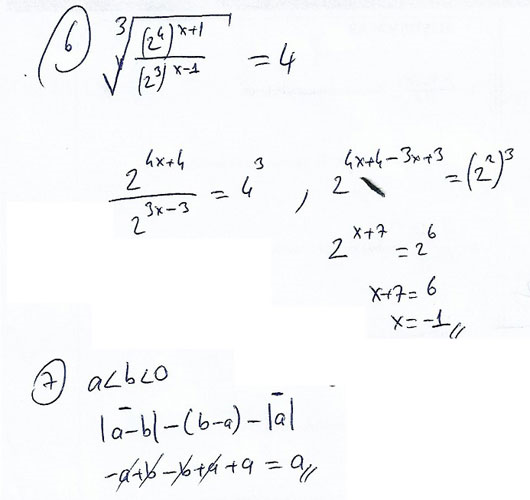 6) ∛((2^4)^(x+1) / (2^3)^(x-1)) = 4
2^(4x+4) / 2^(3x-3) = 4^3 , 2^(4x+4-3x+3) = (2^2)^3
2^(x+7) = 2^6
x+7=6
x=-1//
7) a<b<0
|a-b|-(b-a)-|a|
-a+b-b+a+a = a//